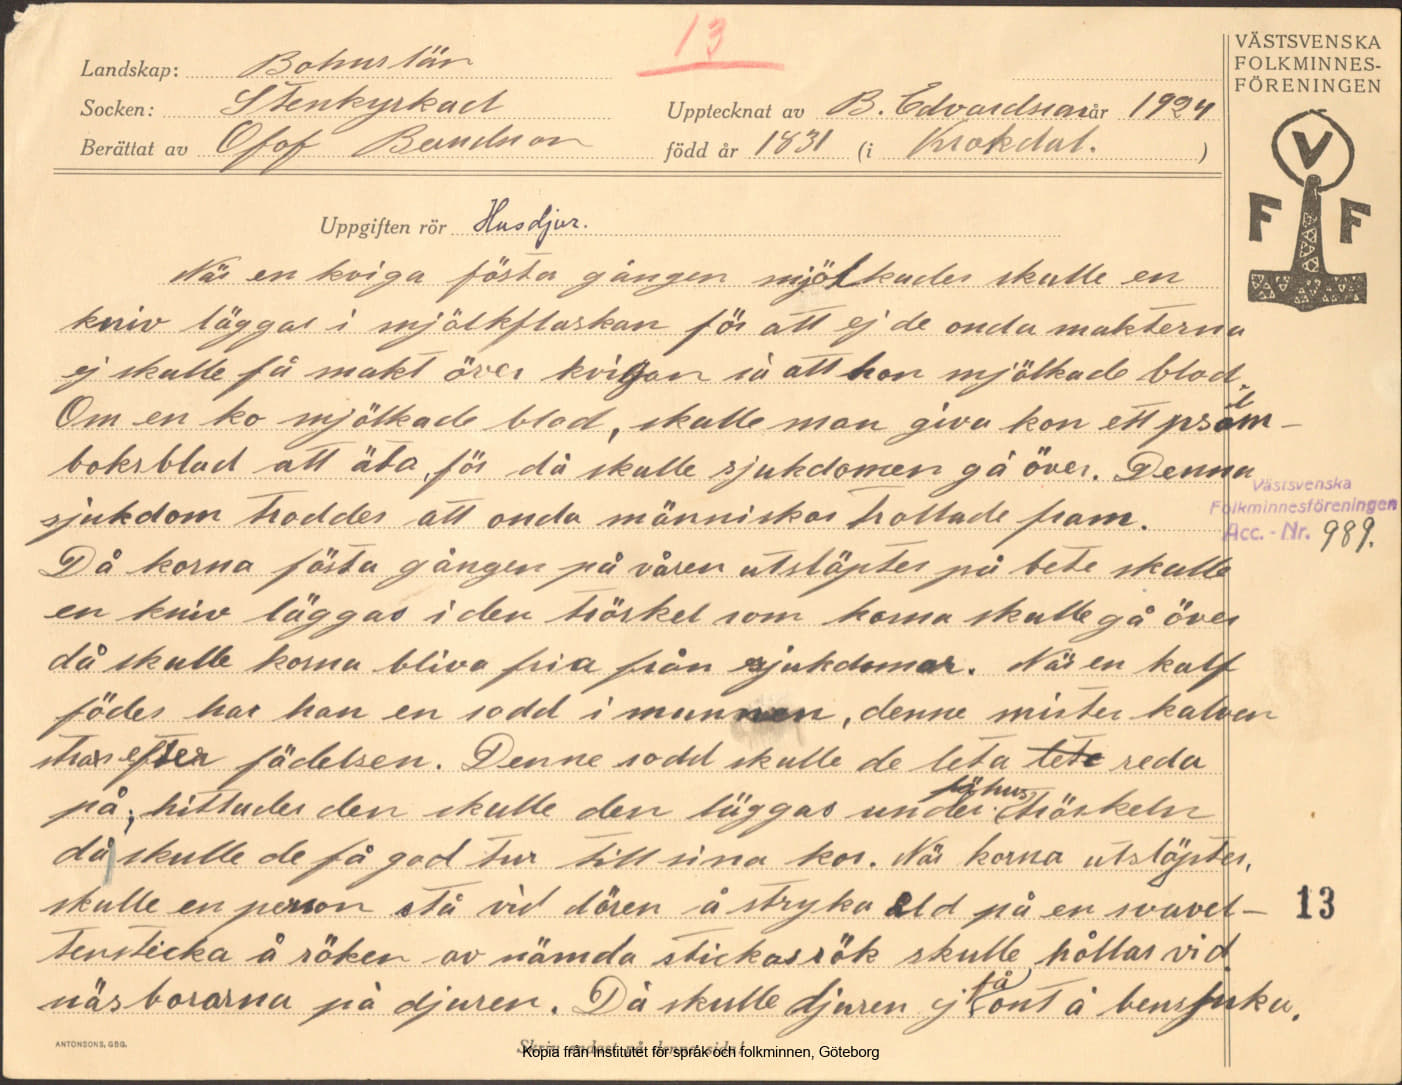 13
VÄSTSVENSKA
FOLKMINNES-
FÖRENINGEN
V
F F
Landskap: Bohuslän
Socken: Stenkyrkad
Upptecknat av B. Edvardsson år 1924
Berättat av Olof Berndtson född år 1831 (i Krokdal. )
Uppgiften rör Husdjur.
När en kviga fösta gången mjölkades skulle en
kniv läggas i mjölkflaskan för att ej de onda makterna
ej skulle få makt över kvigan så att hon mjölkade blod.
Om en ko mjölkade blod, skulle man giva kon ett psalm-
boksblad att äta, för då skulle sjukdomen gå över. Denna
sjukdom troddes att onda människor trollade fram.
Västsvenska
Folkminnesföreningen
Acc. - Nr. 989.
Då korna fösta gången på våren utsläptes på bete skulle
en kniv läggas i den tröskel som korna skulle gå över
då skulle korna bliva fria från sjukdomar. När en kalf
födes har han en sodd i munnen, denne mister kalven
strax efter födelsen. Denne sodd skulle de leta lete reda
på; hittades den skulle den läggas under fähus tröskeln
då skulle de få god tur till sina kor. När korna utsläptes,
skulle en person stå vid dören å stryka eld på en svavel-
tensticka å röken av nämda stickas rök skulle hållas vid
näsborarna på djuren. Då skulle djuren ej få ont å bensjuka.
13
ANTONSONS, GBG.
Skriv endast på denna sida!
Kopia från Institutet för språk och folkminnen, Göteborg